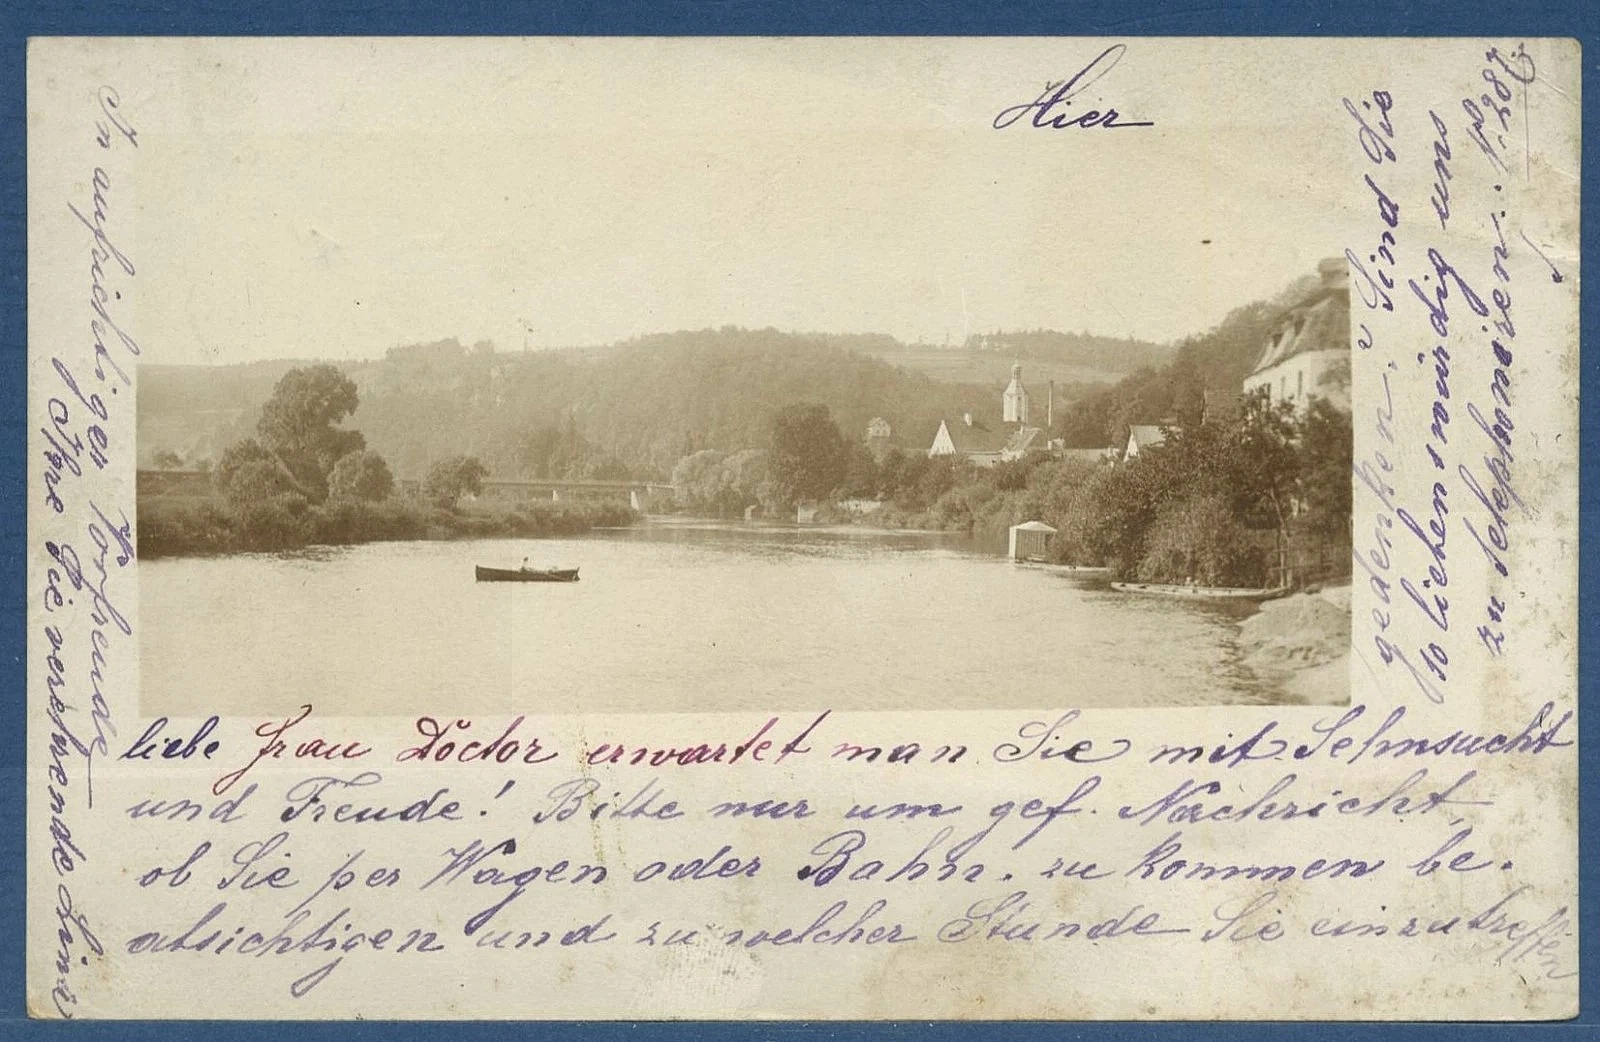 Hier
liebe Frau Doctor erwartet man Sie mit Sehnsucht
und Freude! Bitte nur um gef. Nachricht,
ob Sie per Wagen oder Bahn. zu kommen be-
absichtigen und zu welcher Stunde Sie einzutreffen
gedenken? Sind Sie
so liebenswürdig uns
zu telephonieren: No
287
In aufrichtiger Vorfreude
Ihre Sie verehrende